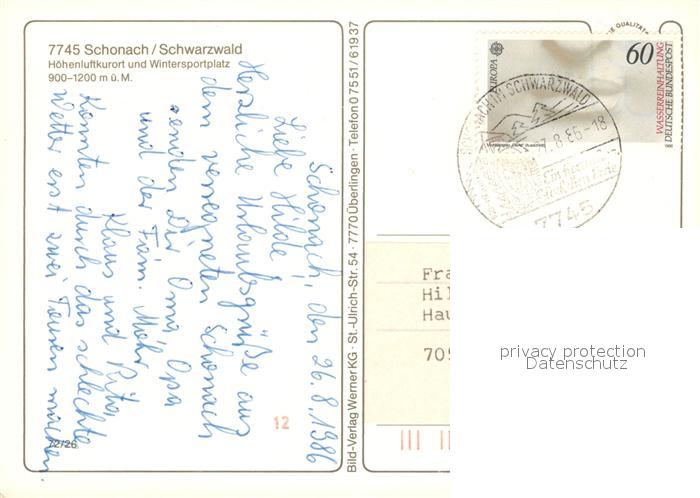 7745 Schonach / Schwarzwald
Höhenluftkurort und Wintersportplatz
900–1200 m ü. M.
Schonach, den 26.8.1986
Liebe Hilde!
Herzliche Urlaubsgrüße aus
dem verregneten Schonach
senden Dir Oma, Opa
und der Fam. Mohr
Klaus und Rita
Konnten durch das schlechte
Wetter erst zwei Touren machen.
72/26
12
Bild-Verlag Werner KG · St.-Ulrich-Str. 54 · 7770 Überlingen · Telefon 0 75 51 / 6 19 37
EUROPA
60
WASSERREINHALTUNG
DEUTSCHE BUNDESPOST
SCHWARZWALD
8.86-18
7745
Fra
Hil
Hau
709
privacy protection
Datenschutz